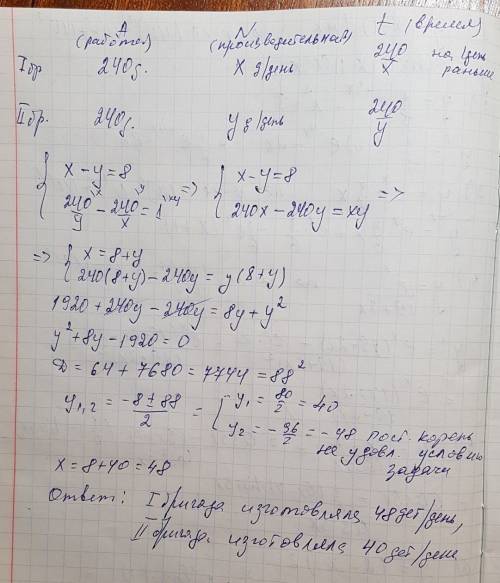 A N t (время)
(работа) (производительная)
I бр 240 д. x д/день 240/x на 1 день раньше
II бр. 240 д. y д/день 240/y
{ x - y = 8 { x - y = 8
{ 240/y - 240/x = 1 => { 240x - 240y = xy =>
=> { x = 8 + y
{ 240(8+y) - 240y = y(8+y)
1920 + 240y - 240y = 8y + y²
y² + 8y - 1920 = 0
D = 64 + 7680 = 7744 = 88²
y₁,₂ = (-8 ± 88)/2 = [ y₁ = 80/2 = 40
y₂ = -96/2 = -48 пост. корень
не удовл. условию
задачи
x = 8 + 40 = 48
Ответ: I бригада изготовляла 48 дет/день,
II бригада изготовляла 40 дет/день